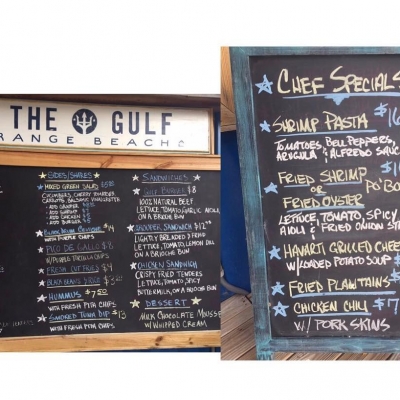 THE GULF
RANGE BEACH
SIDES/SHARES
MIXED GREEN SALAD
CUCUMBERS, CHERRY TOMATOES
CARROTS, BALSAMIC VINAIGRETTE
ADD GROUPER
ADD SHRIMP
ADD CHICKEN
ADD BURGER
CEVICHE $14
WITH PURPLE CHIPS
PICO DE GALLO $8
W/ PURPLE TORTILLA CHIPS
FRESH CUT FRIES $4
BLACK BEANS & RICE $3
HUMMUS $7.50
WITH FRESH PITA CHIPS
SMOKED TUNA DIP $13
WITH FRESH PITA CHIPS
SANDWICHES
GULF BURGER $8
100% NATURAL BEEF
LETTUCE, TOMATO, GARLIC AIOLI,
ON A BRIOCHE BUN
GROUPER SANDWICH $12
LIGHTLY BREADED & FRIED
LETTUCE, TOMATO, LEMON DILL
ON A BRIOCHE BUN
CHICKEN SANDWICH
CRISPY FRIED TENDERS
LETTUCE, TOMATO, SPICY
BUTTERMILK, ON A BRIOCHE BUN
DESSERT
MILK CHOCOLATE MOUSSE
W/ WHIPPED CREAM
CHEF SPECIALS
SHRIMP PASTA $16
TOMATOES, BELL PEPPERS,
ARUGULA & ALFREDO SAUC
FRIED SHRIMP
OR PO'BO
FRIED OYSTER
LETTUCE, TOMATO, SPICY
AIOLI & FRIED ONION ST
HAVARTI GRILLED CHEE
W/ LOADED POTATO SOUP $
FRIED PLANTAINS $
CHICKEN CHILI $7
W/ PORK SKINS